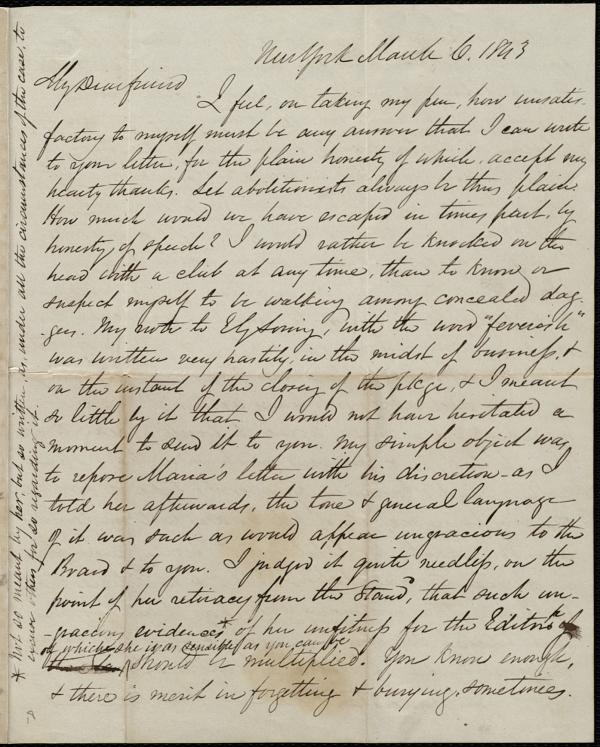 New York March 6. 1843
My Dear friend
I feel, on taking my pen, how unsatis-
factory to myself must be any answer that I can write
to your letter, for the plain honesty of which, accept my
hearty thanks. Let abolitionists always be thus plain.
How much would we have escaped in times past, by
honesty of speech? I would rather be knocked on the
head with a club at any time, than to know or
suspect myself to be walking among concealed dag-
-gers. My note to E Loring, with the word "feverish"
was written very hastily, in the midst of business, &
on the instant of the closing of the pkge, & I meant
so little by it that I would not have hesitated a
moment to send it to you. My simple object was
to repose Maria's letter with his discretion - as I
told her afterwards, the tone & general language
of it was such as would appear ungracious to the
Board & to you. I judged it quite needless, on the
point of her retiracy from the Stand, that such un-
-gracious evidences* of her unfitness for the Editor
of which she was sensible as you can be
should be multiplied. You know enough,
& there is merit in forgetting & burying, sometimes.
* not so meant by her, but so written, as, under all the circumstances of the case, to
excuse others for so regarding it.